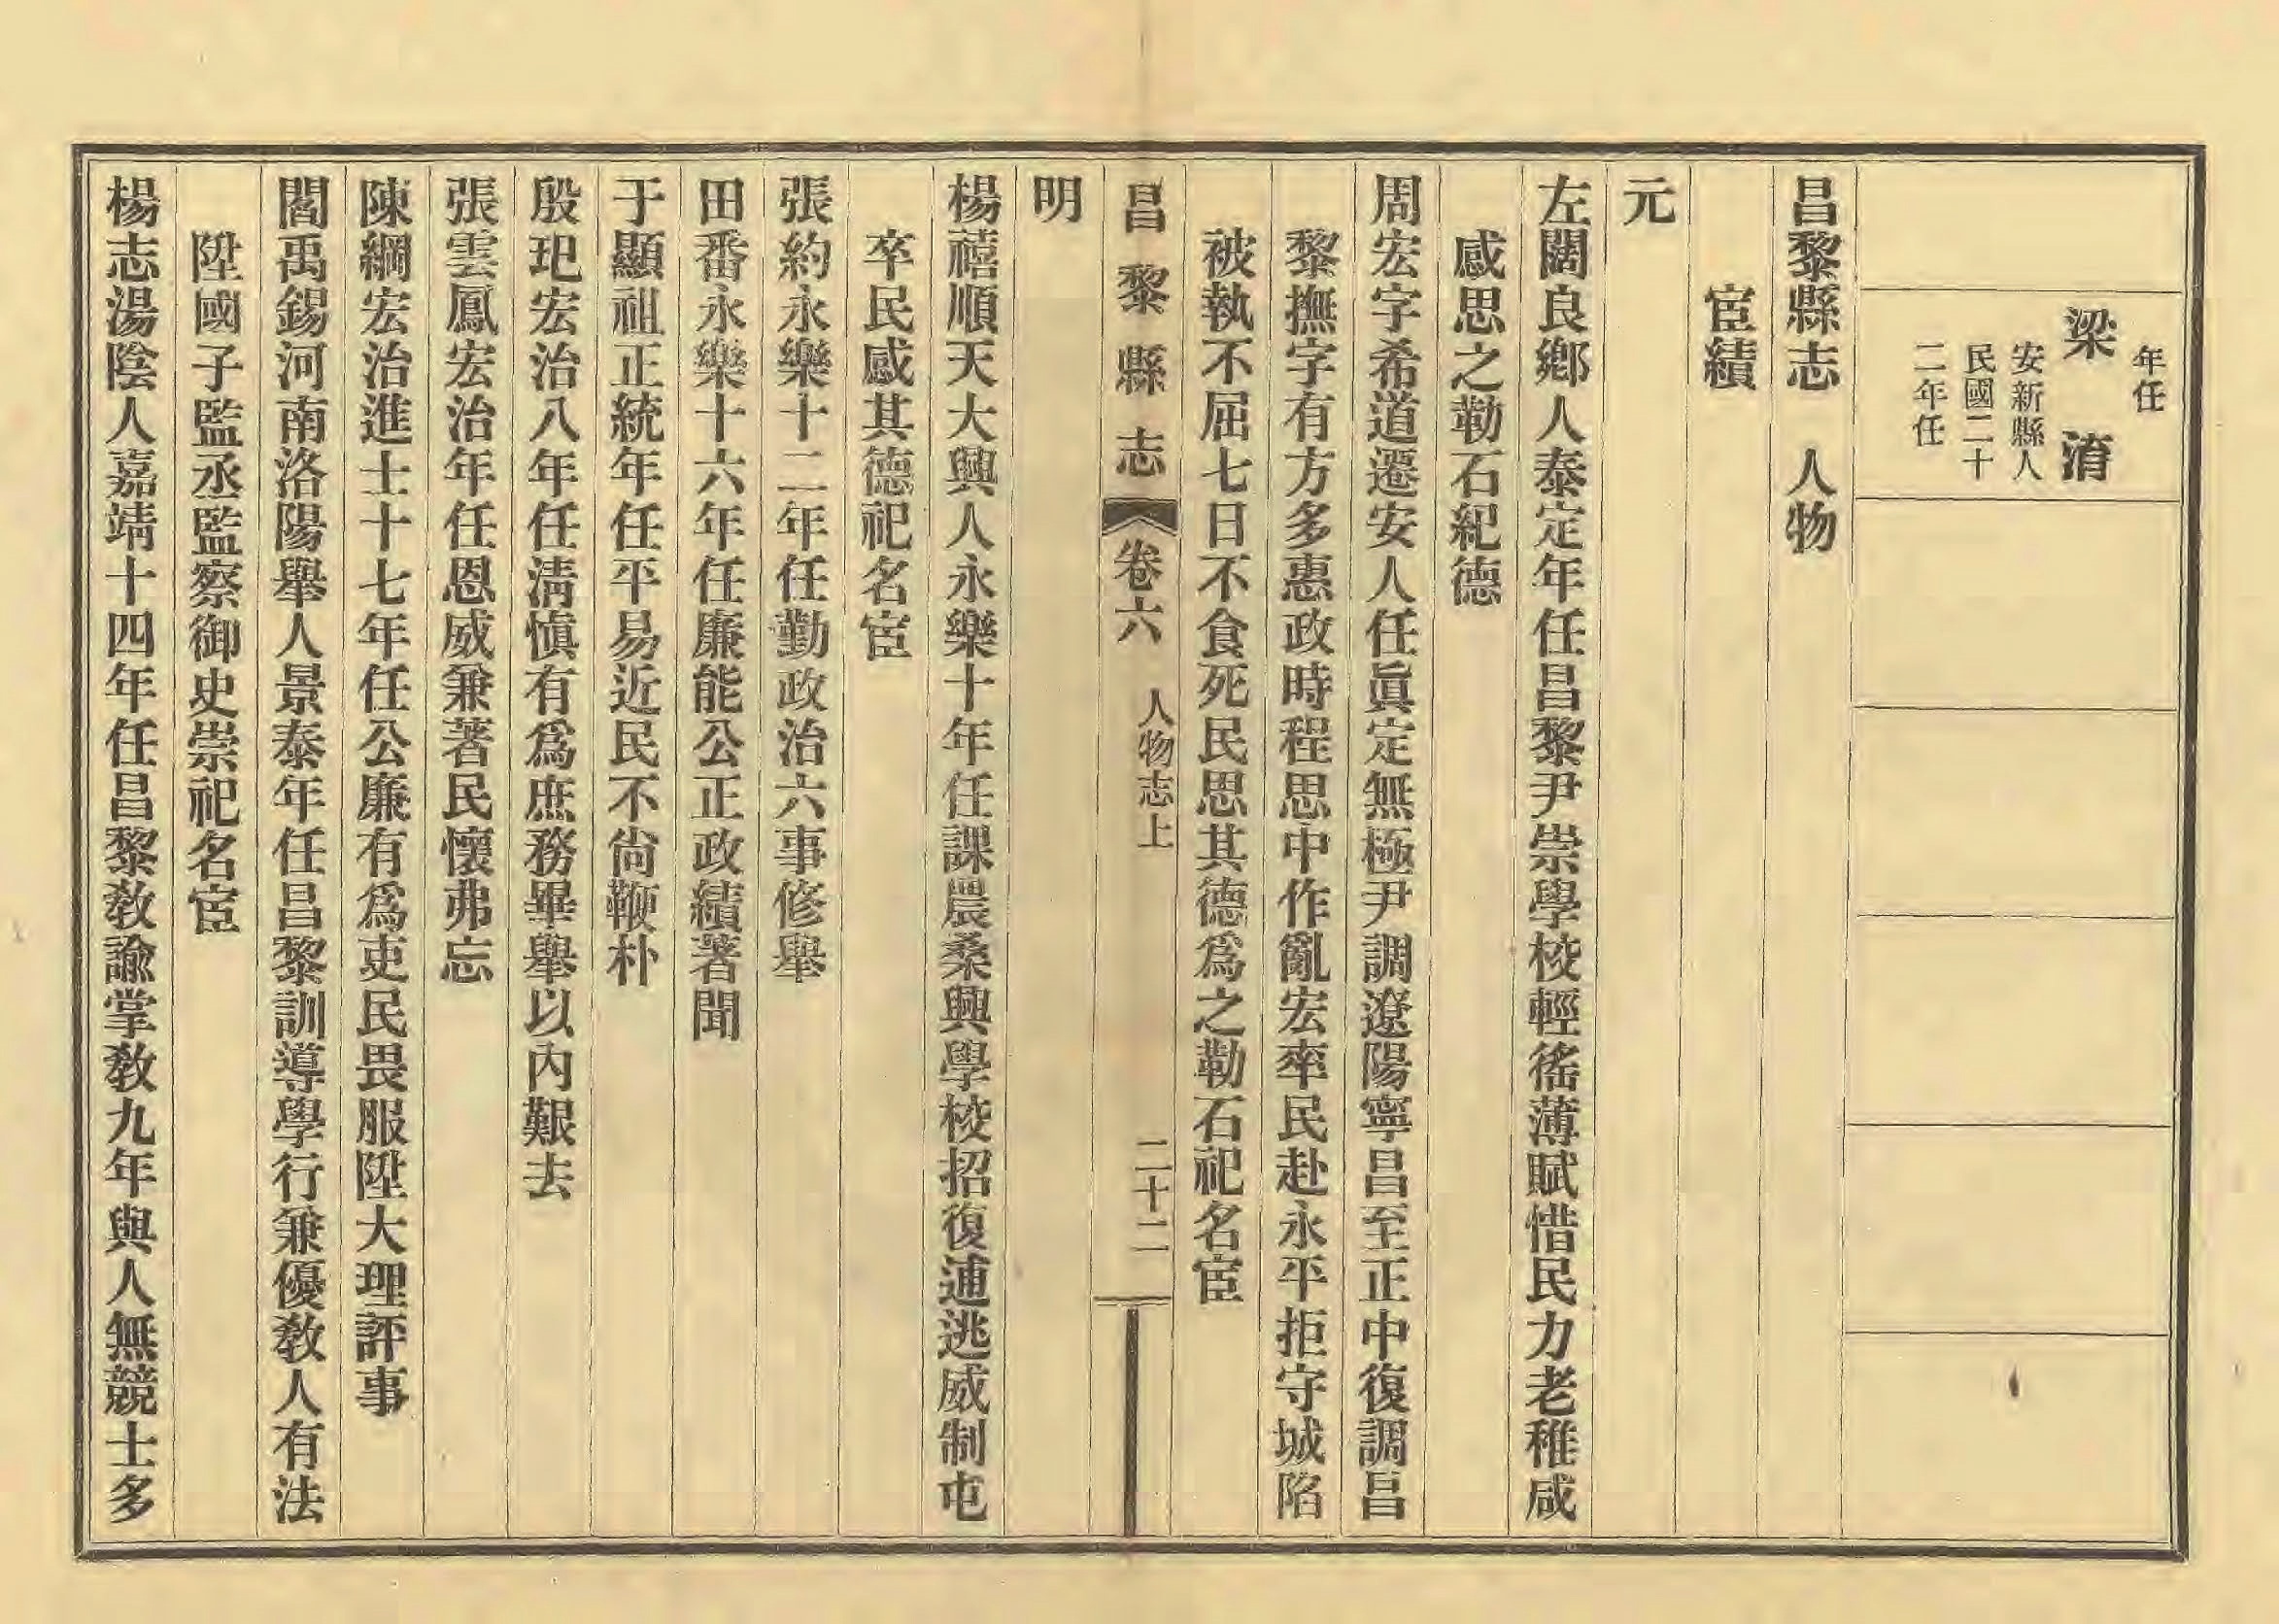 年任
梁 淯
安新縣人
民國二十
二年任
昌黎縣志 人物
宦績
元
左闊良鄉人泰定年任昌黎尹崇學校輕徭薄賦惜民力老稚咸
感思之勒石紀德
周宏字希道遷安人任眞定無極尹調遼陽寧昌至正中復調昌
黎撫字有方多惠政時程思中作亂宏率民赴永平拒守城陷
被執不屈七日不食死民思其德爲之勒石祀名宦
昌黎縣志 卷六 人物志上 二十二
明
楊禧順天大興人永樂十年任課農桑興學校招復逋逃威制屯
卒民感其德祀名宦
張約永樂十二年任勤政治六事修舉
田番永樂十六年任廉能公正政績著聞
于顯祖正統年任平易近民不尙鞭朴
殷玘宏治八年任淸愼有爲庶務畢舉以內艱去
張雲鳳宏治年任恩威兼著民懷弗忘
陳綱宏治進士十七年任公廉有爲吏民畏服陞大理評事
閻禹錫河南洛陽舉人景泰年任昌黎訓導學行兼優敎人有法
陞國子監丞監察御史崇祀名宦
楊志湯陰人嘉靖十四年任昌黎敎諭掌敎九年與人無競士多